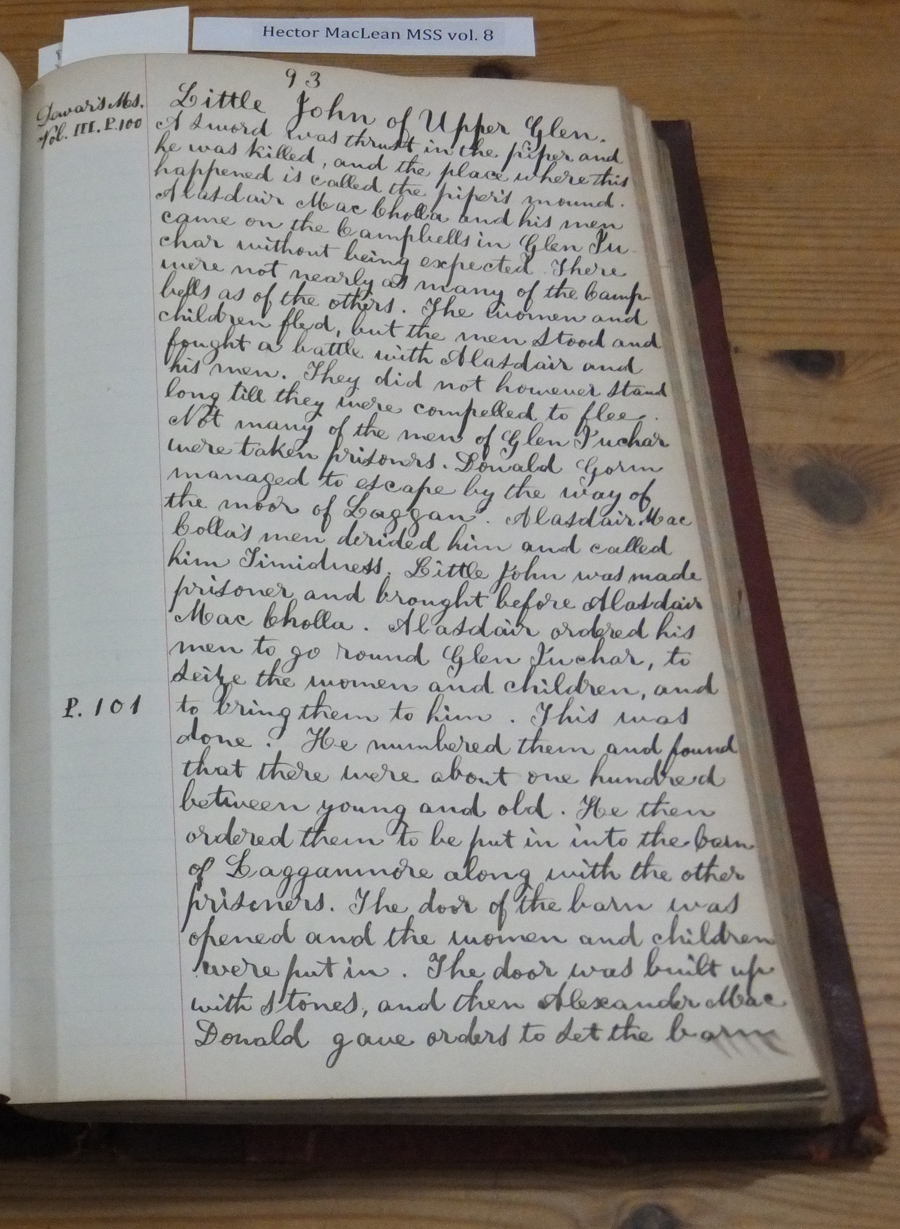 Hector MacLean MSS vol. 8
93
Dewar's Ms.
Vol. III. P.100
Little John of Upper Glen.
A sword was thrust in the piper and
he was killed, and the place where this
happened is called the piper's mound.
Alasdair Mac Cholla and his men
came on the Campbells in Glen Iu-
char without being expected. There
were not nearly as many of the Camp-
bells as of the others. The women and
children fled, but the men stood and
fought a battle with Alasdair and
his men. They did not however stand
long till they were compelled to flee.
Not many of the men of Glen Iuchar
were taken prisoners. Donald Gorm
managed to escape by the way of
the moor of Laggan. Alasdair Mac
Colla's men derided him and called
him Timidness. Little John was made
prisoner and brought before Alasdair
Mac Cholla. Alasdair ordered his
men to go round Glen Iuchar, to
seize the women and children, and
P. 101
to bring them to him. This was
done. He numbered them and found
that there were about one hundred
between young and old. He then
ordered them to be put in into the barn
of Lagganmore along with the other
prisoners. The door of the barn was
opened and the women and children
were put in. The door was built up
with stones, and then Alexander Mac
Donald gave orders to set the barn